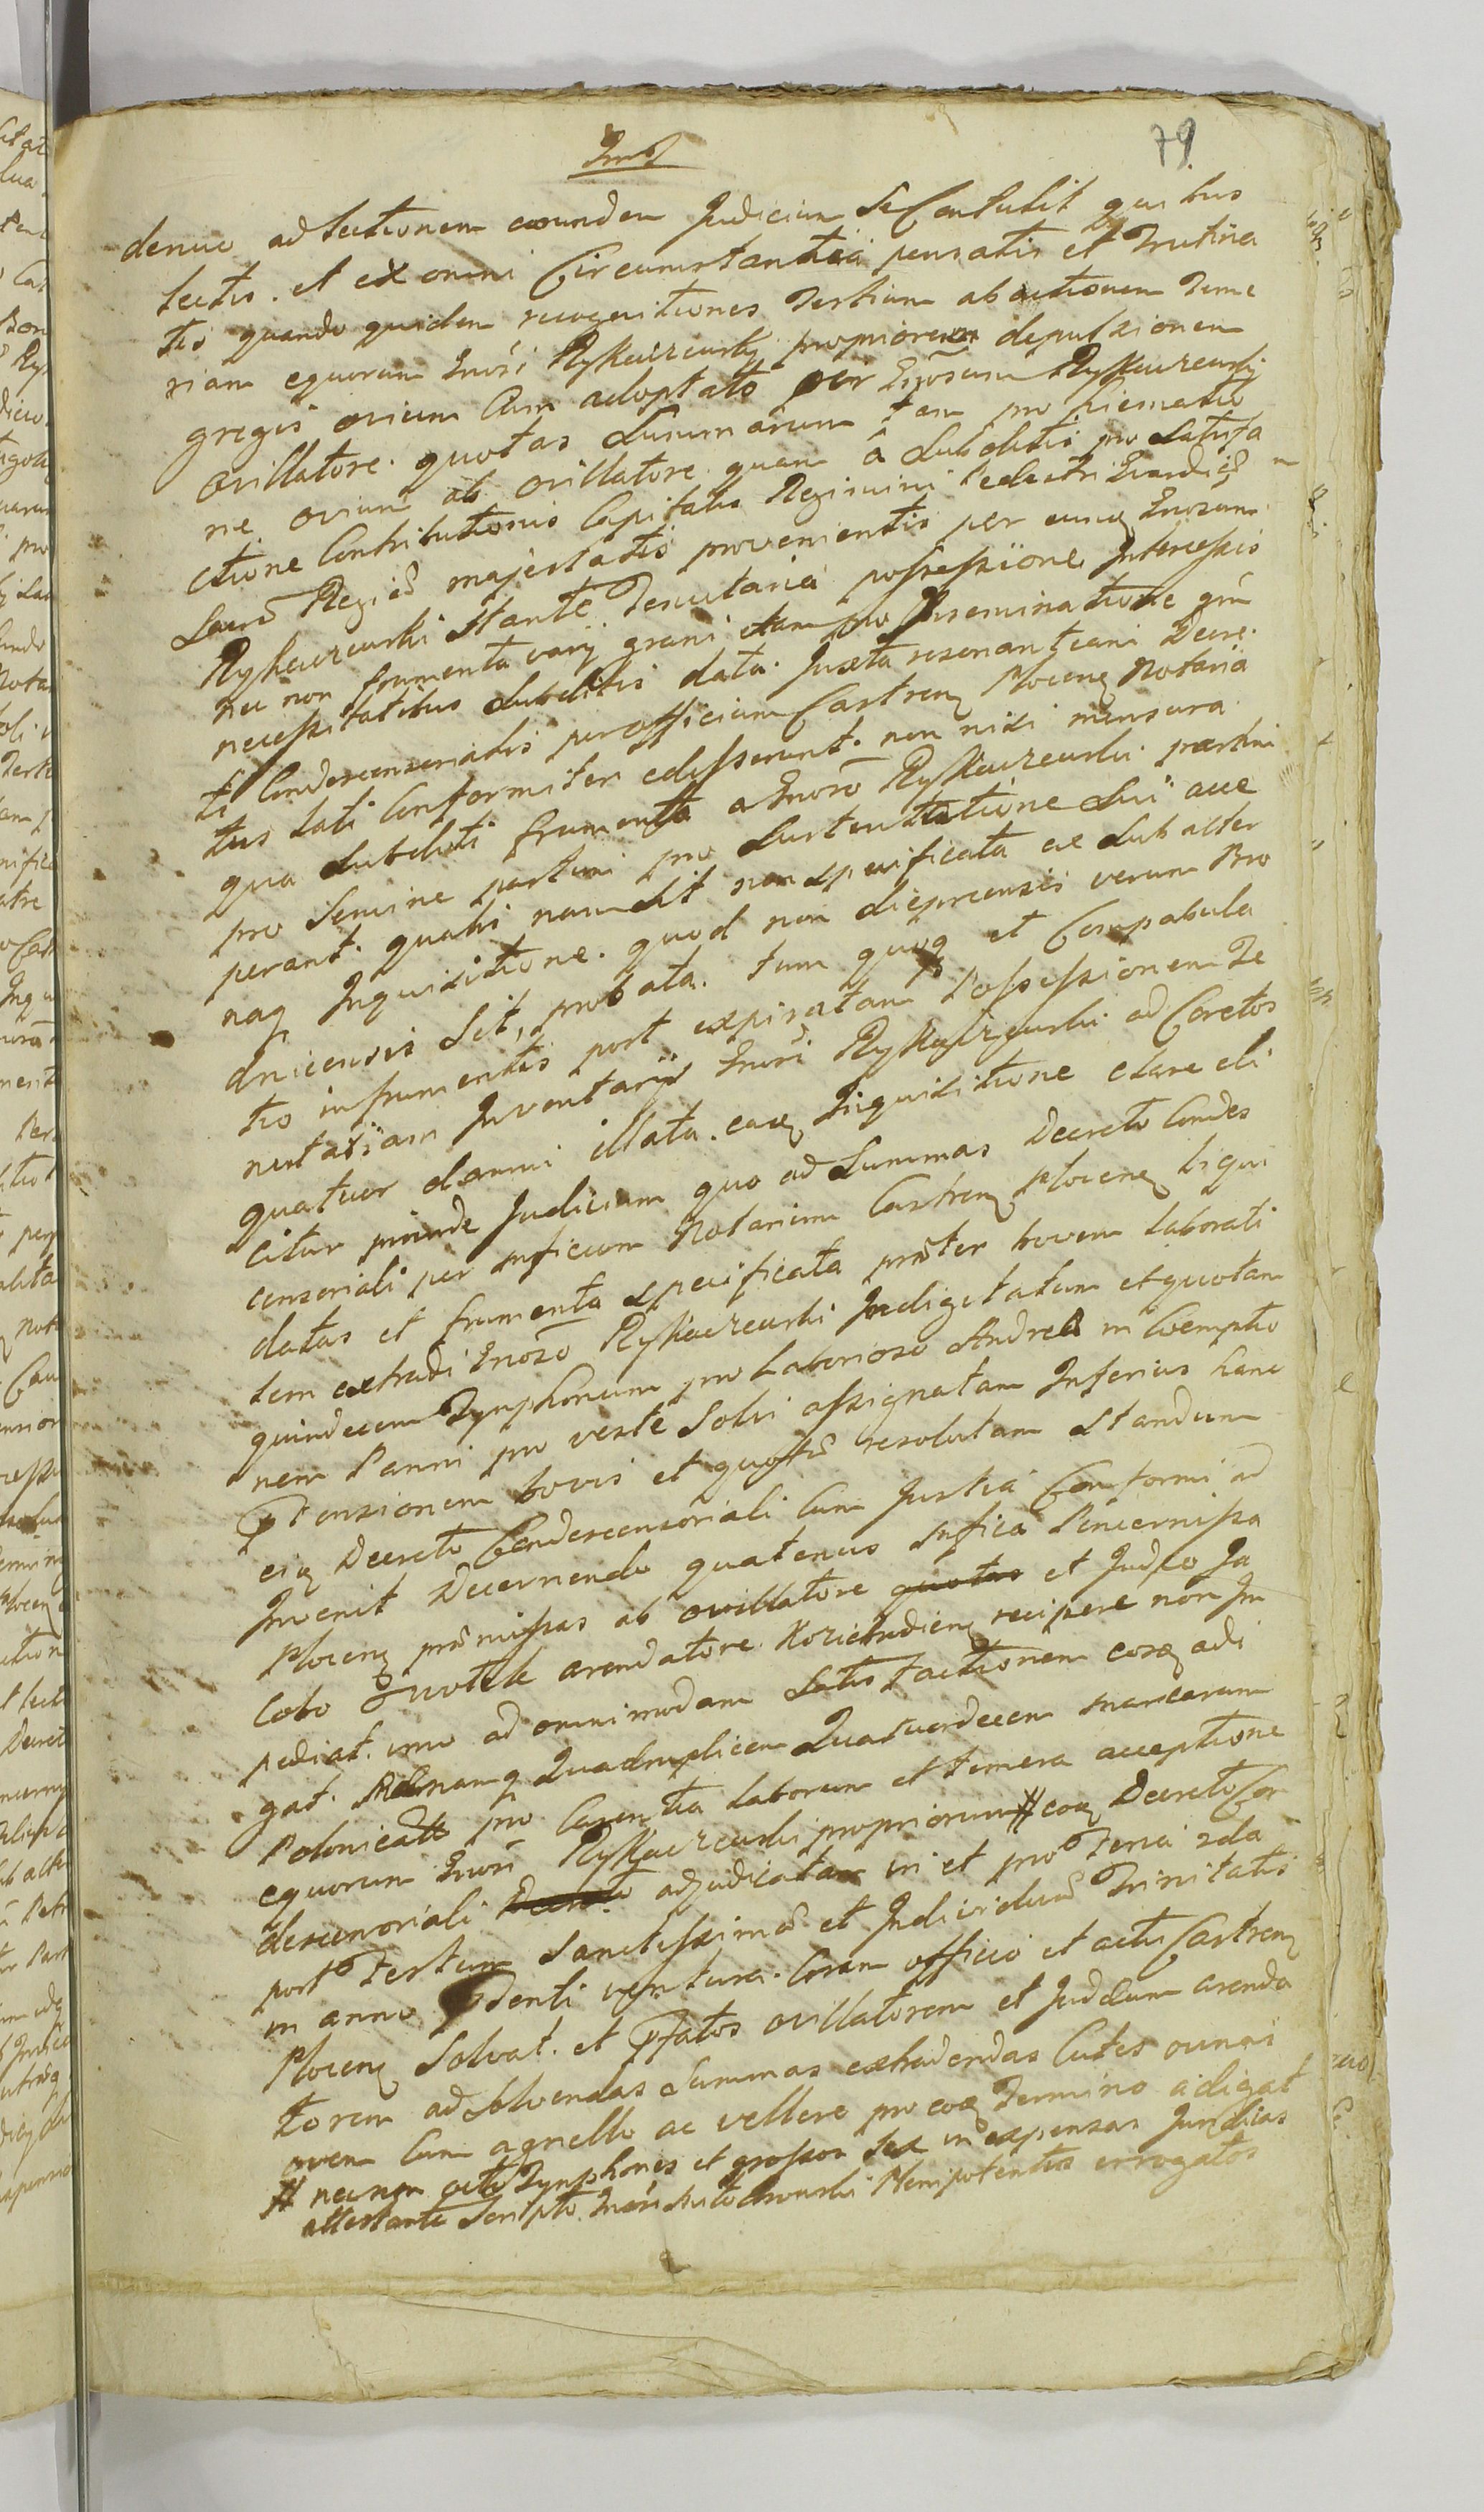 79.
denuo ad lectionem eorundem Judicium se Contulit quibus
lectis. et ex omni Circumstantia pensatis et Trutina
tis quando quidem recognitiones Tertium abactionem Teme
riam equorum Grosi Rykaczewskij propriorum depulsionem
gregis ovium Cum adoptato per Grosum Rykaczewskij
ovillatore. quotas Summarum tam pro hiematio
ne ovium ab ovillatore quam a Subditis pro Satisfa
ctione Contributionis Capitalis Regimini Pedestri Guardiæ
Sacræ Regiæ majestatis provenientis per eunq Grosum
Rykaczewski Stante Tenutaria possessione Intercessis
nec non frumenta varij grani etiam pro Inseminatione
necessitatibus Subditis data. Juxta resonantiam Decre
ti Condescensorialis per officium Castren Plocen Notaria
tus lati Conformiter edisserunt. non nisi mensura
qua Subditi frumenta a Groso Rykaczewski partim
pro Semine partim pro Sustentatione Sui acce
perant. quali nam sit non specificata ac Sub alter
naq Inquisitione. quod non disprensis verum Bro
dnicensis Sit, probata. tum quoq et Compabula
tio in frumentis post expiratam Possessionem Te
nutariam Inventarij Grosi Rykaczewski ad Coretos
quatuor damni illata. eaq Inquisitione clare eli
citur proinde Judicium quo ad Summas Decreto Condes
censoriali per Mficum Notarium Castren Plocen liqui
datas et frumenta specificata præter bovem laborati
tem extradi Groso Rykaczewski Indigitatum et quotam
quindecem Tynphonum pro Laborioso Andrea in Coemptio
nem Panni pro veste Solvi assignatam Inferius hanc
Ptensionem bovis et quotæ resolutam Standum
eiq Decreto Condescensoriali Cum Justia Conformi ad
Invenit Decernendo quatenus Mfica Pincernissa
Plocen præmissas ab ovillatore quotas et Judæo Ja
cobo arendatore recipere non Im
pediat. imo ad omnimodam Satisfactionem eosq adi
gat. Quadruplicem Quatuordecem marcarum
Polonicalis pro Carentia laborum et temera acceptione
equorum Grosi Rykaczewski propriorum # eoq Decreto Con
descensoriali Decreto adjudicatam in et pro Feria 2da
post Festum Sanctissimæ et Individuæ Trinitatis
in anno Pdenti ventura. Coram officio et actis Castren
Plocen Solvat. et Pfatos ovillatorem et Judæum arenda
torem ad Solvendas Summas extradendas Cutes ovinas
ovem Cum agnello ac vellere pro eoq Termino adigat
# necnon octo Tynphones et grossos Sex in expensas Juridicas
attestante Scripto Grosi Plenipotentis errogatos